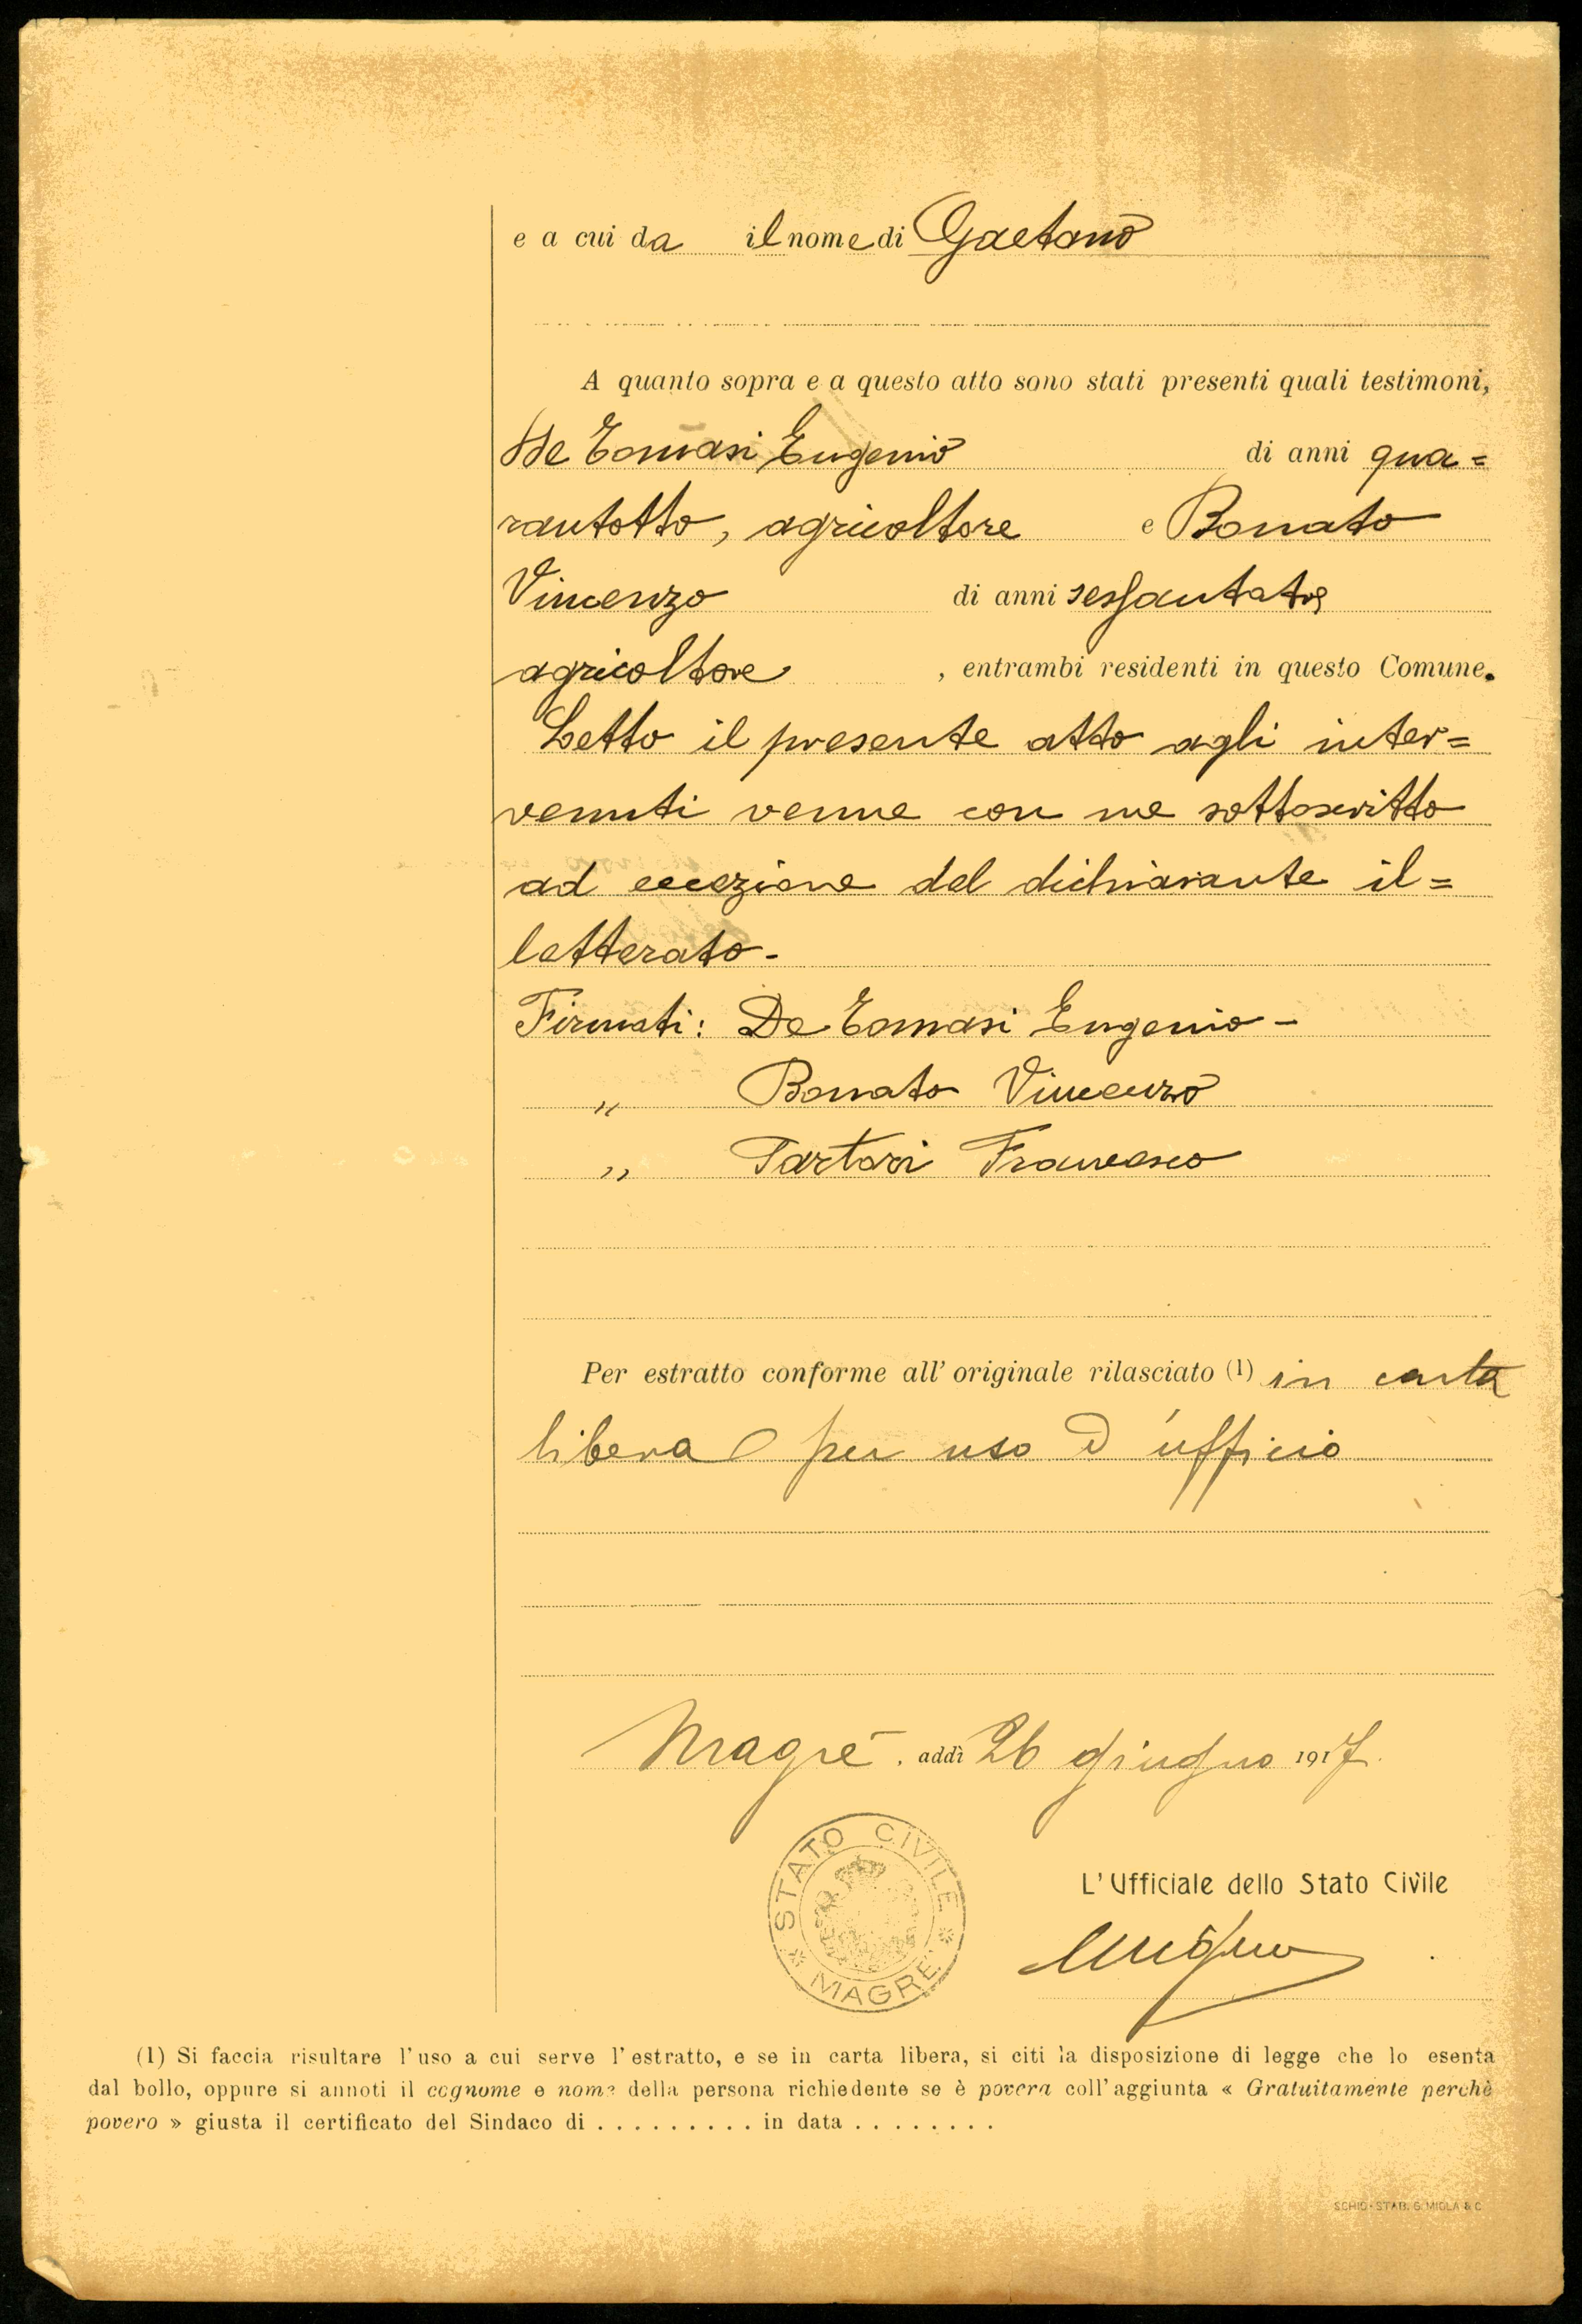 e a cui da il nome di Gaetano
A quanto sopra e a questo atto sono stati presenti quali testimoni,
De Tomasi Eugenio di anni qua=
rantotto, agricoltore e Bonato
Vincenzo di anni sessantatre
agricoltore, entrambi residenti in questo Comune.
Letto il presente atto agli inter=
venuti venne con me sottoscritto
ad eccezione del dichiarante il=
letterato.-
Firmati: De Tomasi Eugenio -
" Bonato Vincenzo
" Sartori Francesco
Per estratto conforme all' originale rilasciato (1) in carta
libera per uso d'ufficio
Magrè, addì 26 giugno 1917.
STATO CIVILE
MAGRE'
L' Ufficiale dello Stato Civile
(1) Si faccia risultare l'uso a cui serve l'estratto, e se in carta libera, si citi la disposizione di legge che lo esenta
dal bollo, oppure si annoti il cognome e nome della persona richiedente se è povera coll'aggiunta « Gratuitamente perchè
povero » giusta il certificato del Sindaco di . . . . . . . . . in data . . . . . . . .
SCHIO - STAB. G. MIOLA & C